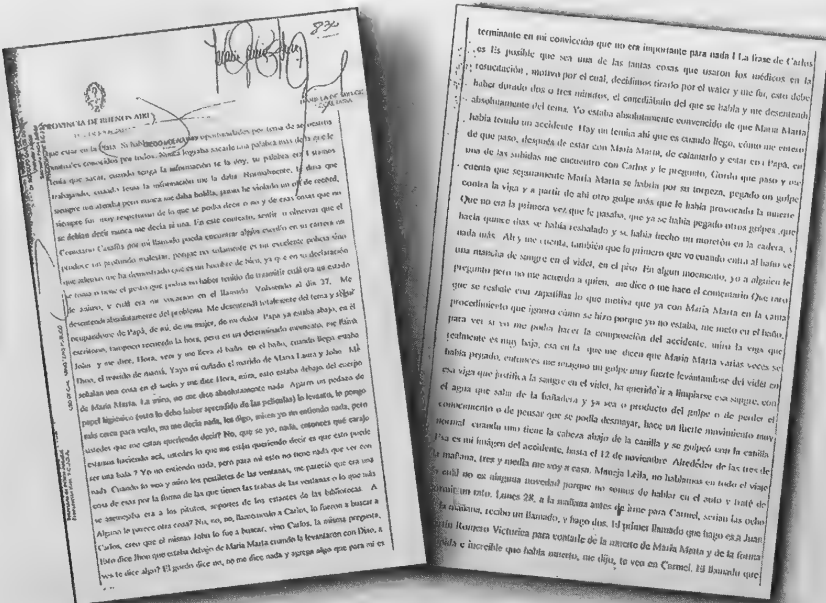 832
PROVINCIA DE BUENOS AIRES
que estar en la lista. Si
naturales conocidos por todos. Nunca logramos sacarle una palabra más de la que le
tenía que sacar, cuando tenga la información te la doy, su palabra era I stamos
trabajando, cuando tenía la información me la daba. Normalmente, la dina que
siempre me atendía pero nunca me daba bolilla, jamás he violado un off de record,
siempre fui muy respetuoso de lo que se podía decir o no y de esas cosas que no
se debían decir nunca me decía ni una. En este contexto, sentir u observar que el
Comisario Casafús por mi llamado pueda encontrar algún escrito en su carrera me
produce un profundo malestar, porque no solamente es un excelente policía sino
que además me ha demostrado que es un hombre de bien, ya que en su declaración
de ánimo, y cuál era mi vocación en el llamado. Volviendo al día 27. Me
desentendí absolutamente del problema. Me desentendí totalmente del tema y seguí
ocupándome de Papá, de mí, de mi mujer, de mi dolor. Papá ya estaba abajo, en el
escritorio, tampoco recuerdo la hora, pero en un determinado momento, me llama
John y me dice, Hora, vení y me lleva al baño, en el baño, cuando llego estaba
Diso, el marido de mamá, Yayo mi cuñado el marido de María Laura y John. Me
señalan una cosa en el suelo y me dice Hora, mira, esto estaba debajo del cuerpo
de María Marta. La miro, no me dice absolutamente nada. Agarro un pedazo de
papel higiénico (esto lo debo haber aprendido de las películas) lo levanto, lo pongo
más cerca para verlo, no me decía nada, les digo, miren yo no entiendo nada, pero
ustedes que me están queriendo decir? No, que se yo, nada, entonces qué carajo
estamos haciendo acá, ustedes lo que me están queriendo decir es que esto puede
ser una bala ? Yo no entiendo nada, pero para mí esto no tiene nada que ver con
nada. Cuando lo veo y miro los pestillos de las ventanas, me pareció que era una
cosa de esas por la forma de las que tienen las trabas de las ventanas o lo que más
se asemejaba era a los pitutos, soportes de los estantes de las bibliotecas. A
Alguno le parece otra cosa? No, no, no, llamémoslo a Carlos, lo fueron a buscar a
Carlos, creo que el mismo John lo fue a buscar, vino Carlos, la misma pregunta,
Esto dice Jhon que estaba debajo de María Marta cuando la levantaron con Diso, a
vos te dice algo? El gordo dice no, no me dice nada y agrega algo que para mi es
terminante en mi convicción que no era importante para nada I La frase de Carlos
es Es posible que sea una de las tantas cosas que usaron los médicos en la
resucitación , motivo por el cual, decidimos tirarlo por el water y me fui, esto debe
haber durado dos o tres minutos, el conciliábulo del que se habla y me desentendí
absolutamente del tema. Yo estaba absolutamente convencido de que María Marta
había tenido un accidente. Hay un tema ahí que es cuando llego, cómo me entero
de que paso, después de estar con María Marta, de calmarlo y estar con Papá, en
una de las subidas me encuentro con Carlos y le pregunto, Gordo que paso y me
cuenta que seguramente María Marta se habría por su torpeza, pegado un golpe
contra la viga y a partir de ahí otro golpe más que le había provocado la muerte
Que no era la primera vez que le pasaba, que ya se había pegado otros golpes ,que
hacía quince días se había resbalado y se había hecho un moretón en la cadera, y
nada más. Ahí y me cuenta, también que lo primero que vio cuando entra al baño ve
una mancha de sangre en el videt, en el piso. En algun momento, yo a alguien le
pregunto pero no me acuerdo a quien, me dice o me hace el comentario Que raro
que se resbale con zapatillas lo que motiva que ya con María Marta en la cama
procedimiento que ignoro cómo se hizo porque yo no estaba, me meto en el baño,
para ver si yo me podía hacer la composición del accidente, miro la viga que
realmente es muy baja, esa en la que me dicen que María Marta varias veces se
había pegado, entonces me imagino un golpe muy fuerte levantándose del videt en
esa viga que justifica la sangre en el videt, ha querido ir a limpiarse esa sangre, con
el agua que salía de la bañadera y ya sea o producto del golpe o de perder el
conocimiento o de pensar que se podía desmayar, hace un fuerte movimiento muy
normal cuando uno tiene la cabeza abajo de la canilla y se golpeó con la canilla
Esa es mi imágen del accidente, hasta el 12 de noviembre Alrededor de las tres de
la mañana, tres y media me voy a casa. Maneja Leila, no hablamos en todo el viaje
lo cuál no es ninguna novedad porque no somos de hablar en el auto y traté de
dormir un rato. Lunes 28, a la mañana antes de irme para Carmel, serían las ocho
de la mañana, recibo un llamado, y hago dos. El primer llamado que hago es a Juan
Martín Romero Victorica para contarle de la muerte de María Marta y de la forma
estúpida e increíble que había muerto, me dijo, te veo en Carmel. El llamado que